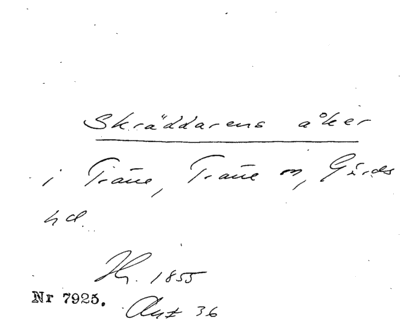 Skräddarens åker
i Träne, Träne sn, Gärds
hd.
Hr. 1855
Nr 7925.
Ant 36